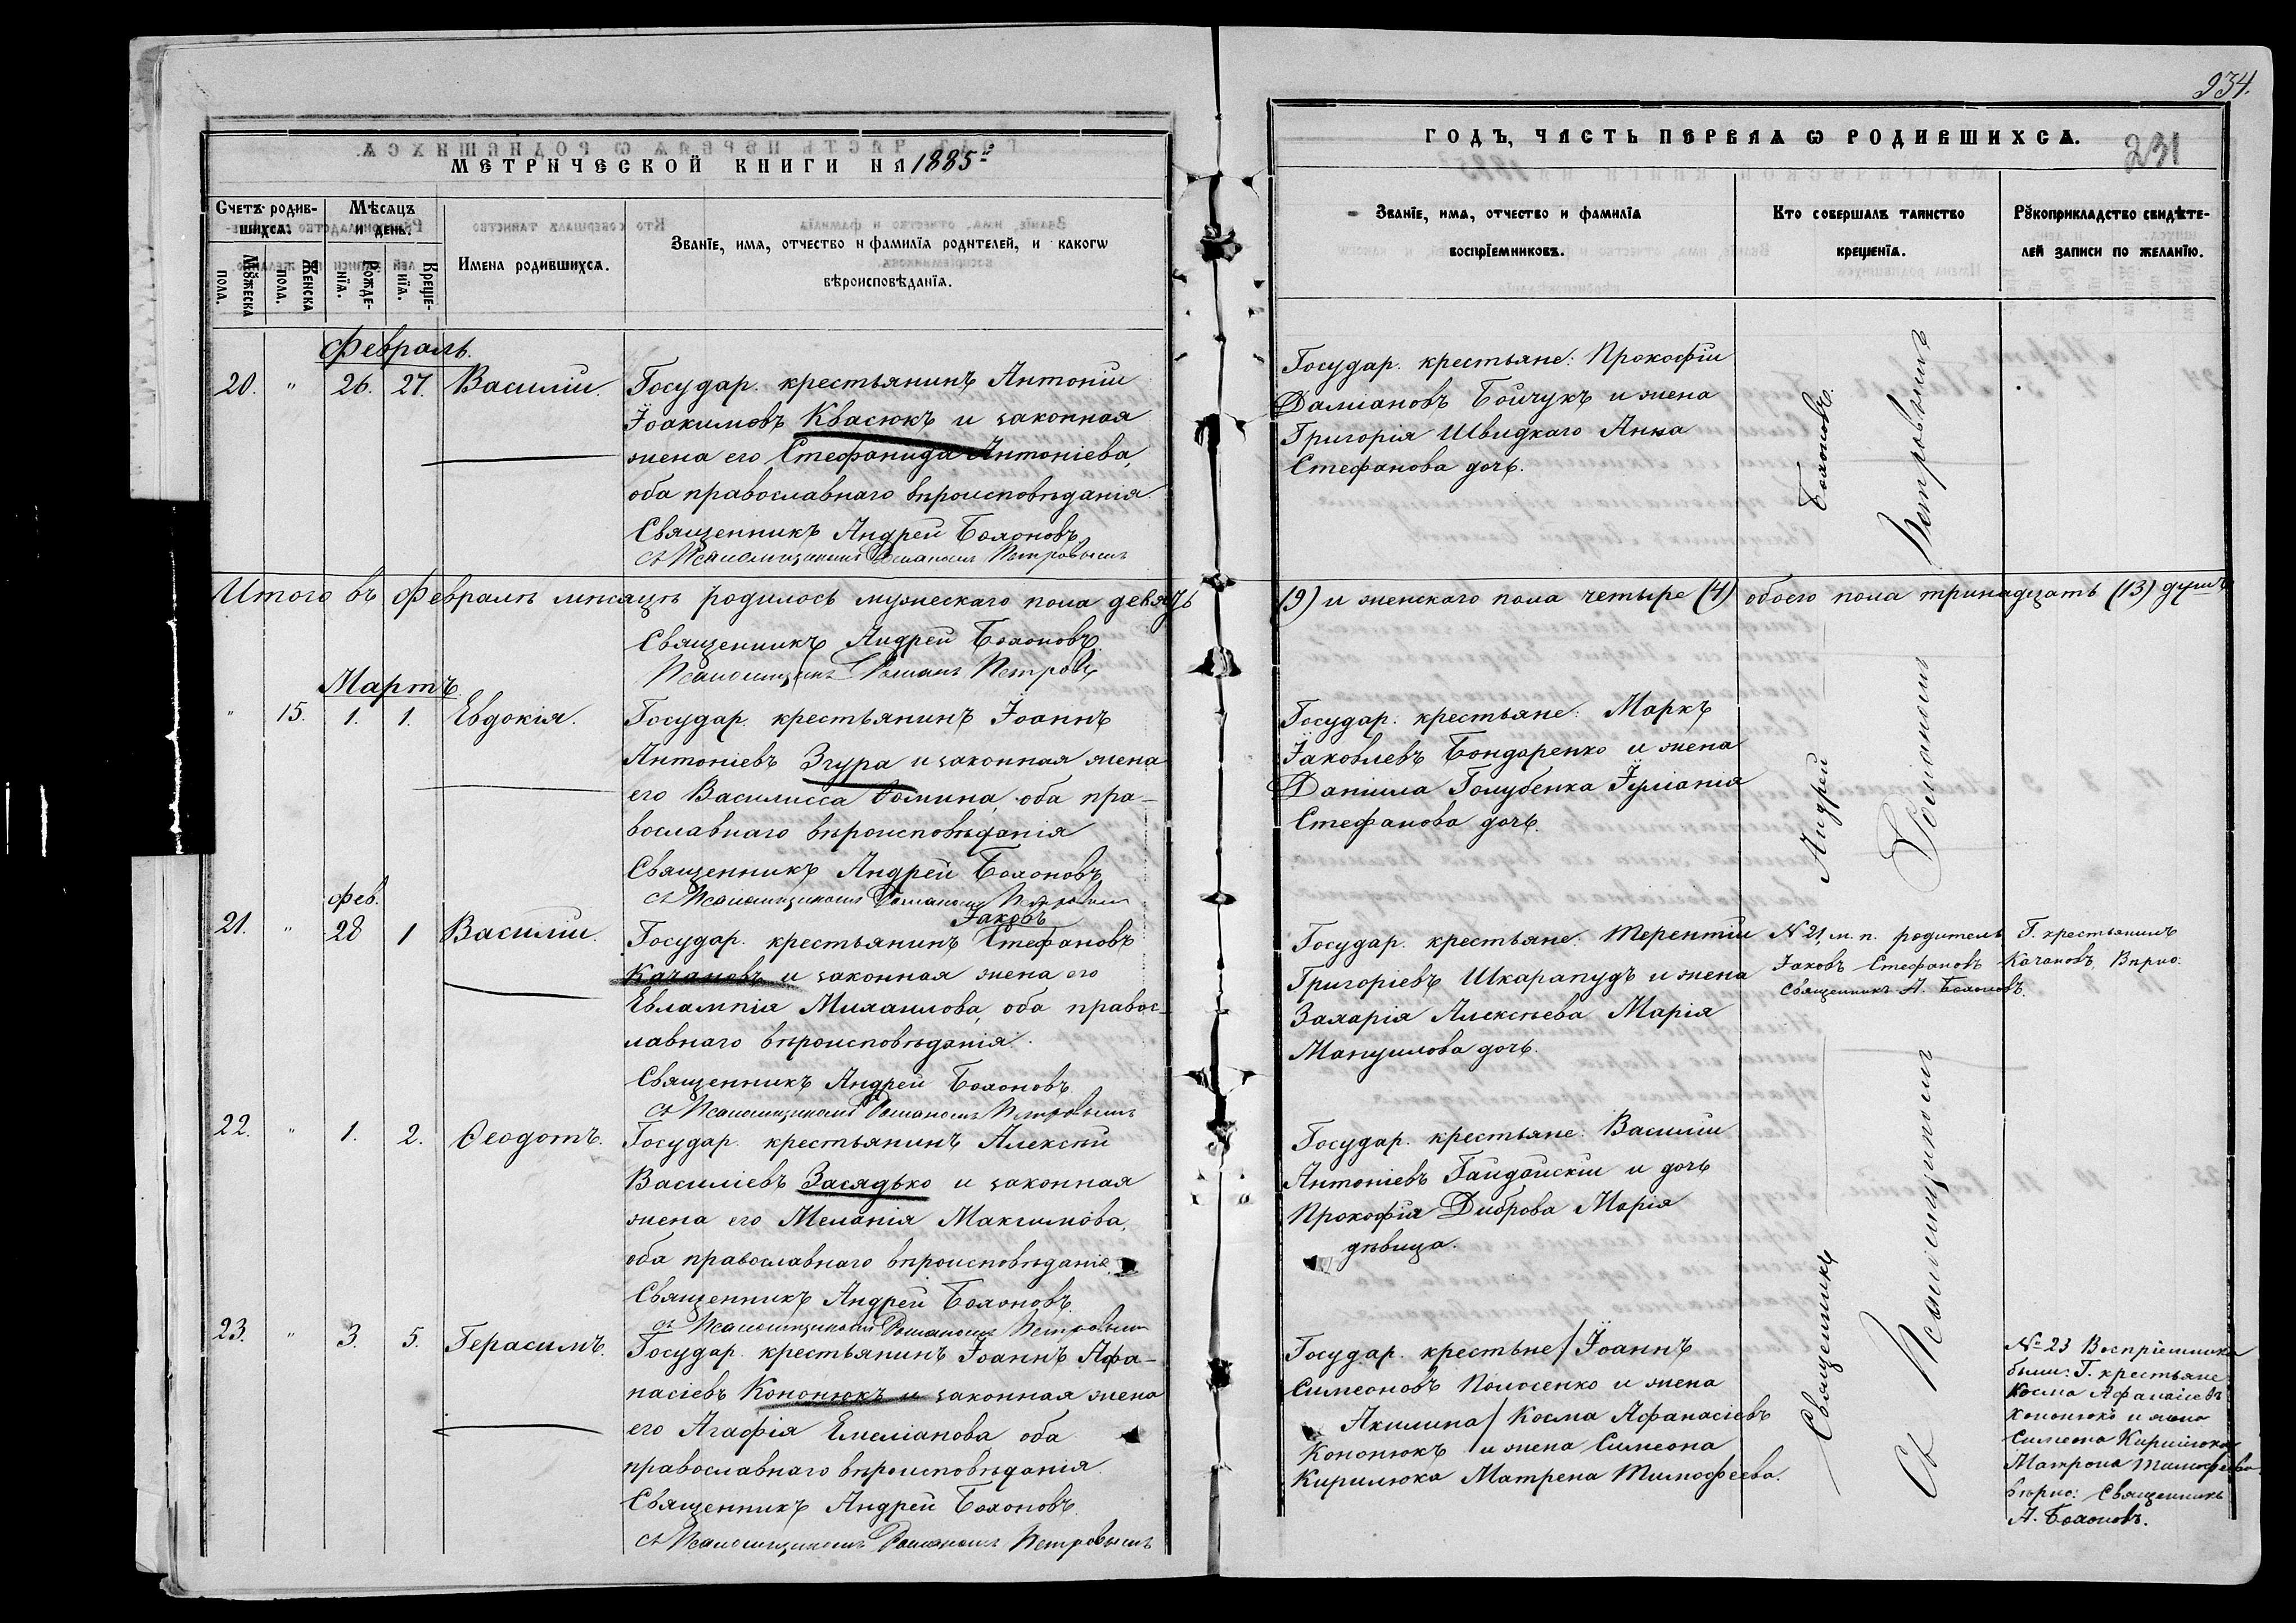 934.
МЕТРИЧЕСКОЙ КНИГИ НА 1885 г
ГОДЪ, ЧАСТЬ ПЕРВАЯ Ѡ РОДИВШИХСЯ.
231
Счетъ родив-
шихся.
Мѣсяцъ
и день.
Мужеска
пола.
Женска
пола.
Рожде-
нїя.
Креще-
нїя.
Имена родившихся.
Званїе, имя, отчество и фамилїя родителей, и какогѡ
вѣроисповѣданїя.
Званїе, имя, отчество и фамилїя
воспрїемниковъ.
Кто совершалъ таинство
крещенїя.
Рукоприкладство свидѣте-
лей записи по желанїю.
Февраль.
20. " 26. 27. Василій.
Государ. крестьянинъ Антоній
Іоакимовъ Квасюкъ и законная
жена его Стефанида Антоніева,
оба православнаго вѣроисповѣданія.
Священникъ Андрей Бохоновъ
съ Псаломщикомъ Романомъ Петровымъ
Государ. крестьяне: Прокофій
Даміановъ Бойчукъ и жена
Григорія Швидкаго Анна
Стефанова дочь.
Итого въ Февралѣ мѣсяцѣ родилось мужескаго пола девять
(9) и женскаго пола четыре (4) обоего пола тринадцать (13) душъ
Священникъ Андрей Бохоновъ.
Псаломщикъ Романъ Петровъ
Мартъ
" 15. 1. 1. Евдокія.
Государ. крестьянинъ Іоаннъ
Антоніевъ Згура и законная жена
его Василисса Фомина, оба пра-
вославнаго вѣроисповѣданія
Священникъ Андрей Бохоновъ
съ Псаломщикомъ Романомъ Петровым
Государ. крестьяне: Маркъ
Іаковлевъ Бондаренко и жена
Даніила Голубенка Іуліанія
Стефанова дочь.
фев.
21. " 28 1 Василій.
Іаковъ
Государ. крестьянинъ Стефановъ
Качановъ и законная жена его
Евлампія Михаилова, оба правос-
лавнаго вѣроисповѣданія.
Священникъ Андрей Бохоновъ
съ Псаломщикомъ Романомъ Петровымъ
Государ. крестьяне: Терентій
Григоріевъ Шкарапудъ и жена
Захарія Алексѣева Марія
Мануилова дочь.
№ 21, м. п. родитель Г. крестьянинъ
Іаковъ Стефановъ Качановъ. Вѣрно:
Священникъ А. Бохоновъ.
22. " 1. 2. Ѳеодотъ.
Государ. крестьянинъ Алексій
Василіевъ Засядько и законная
жена его Меланія Максимова,
оба православнаго вѣроисповѣданія.
Священникъ Андрей Бохоновъ.
съ Псаломщикомъ Романомъ Петровым
Государ. крестьяне: Василій
Антоніевъ Гайдайскій и дочь
Прокофія Диброва Марія
дѣвица.
23. " 3. 5. Герасимъ.
Государ. крестьянинъ Іоаннъ Афа-
насіевъ Кононюкъ и законная жена
его Агафія Емеліанова оба
православнаго вѣроисповѣданія.
Священникъ Андрей Бохоновъ.
съ Псаломщикомъ Романомъ Петровымъ
Государ. крестьне / Іоаннъ
Симеоновъ Полосенко и жена
Акилина / Косма Афанасіевъ
Кононюкъ и жена Симеона
Кирилюка Матрена Тимофеева.
№ 23 Воспріемники
были: Г. крестьяне
Косма Афанасіевъ
Кононюкъ и жена
Симеона Кирилюка
Матрона Тимофеева
вѣрно: Священникъ
А. Бохоновъ.
Священникъ Андрей Бохоновъ.
Съ Псаломщикомъ Романомъ Петровымъ